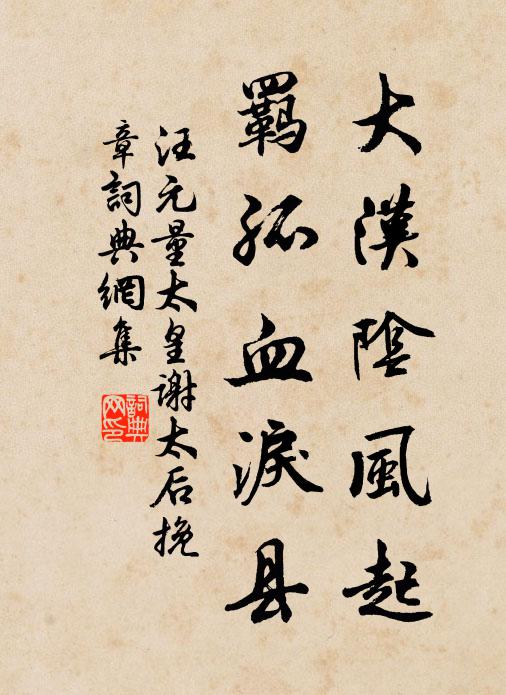 大漠陰風起
羈孤血淚县
汪元量太皇谢太后挽
章詞典網集
詞典网印